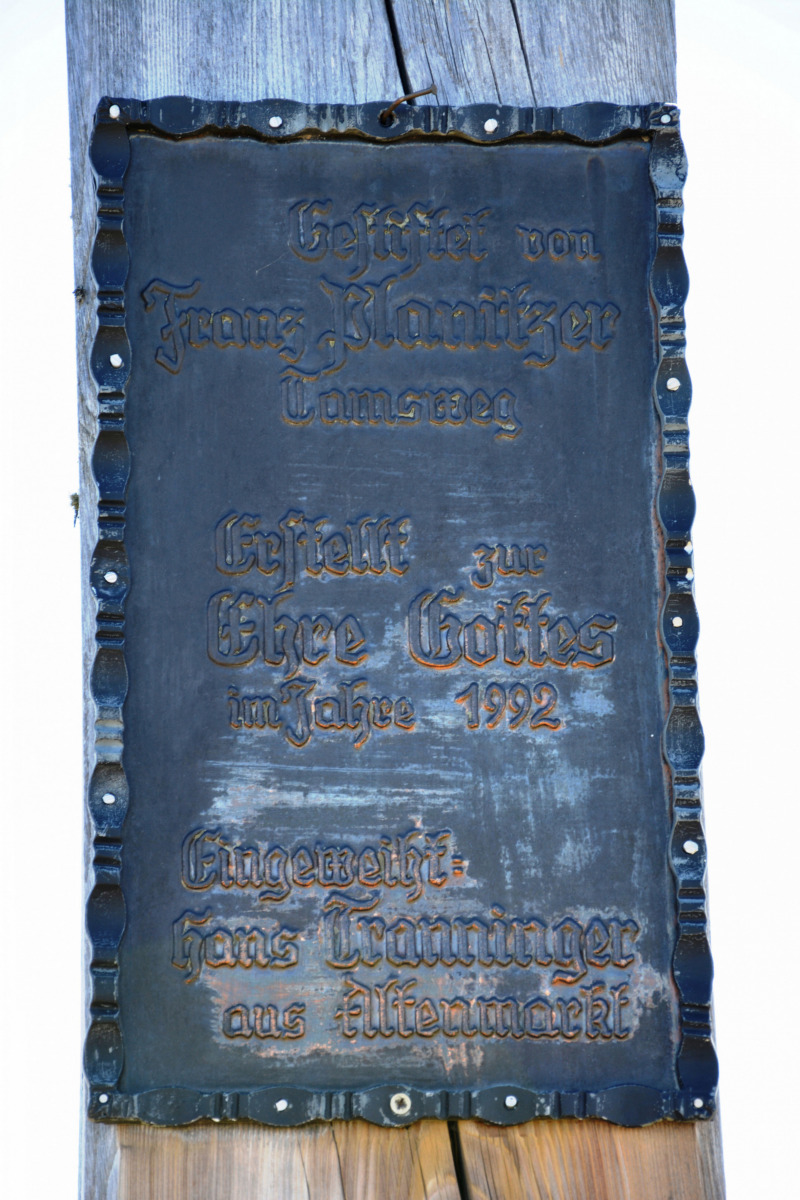 Gestiftet von
Franz Planitzer
Tamsweg
Erstellt zur
Ehre Gottes
im Jahre 1992
Eingeweiht:
Hans Tranninger
aus Altenmarkt